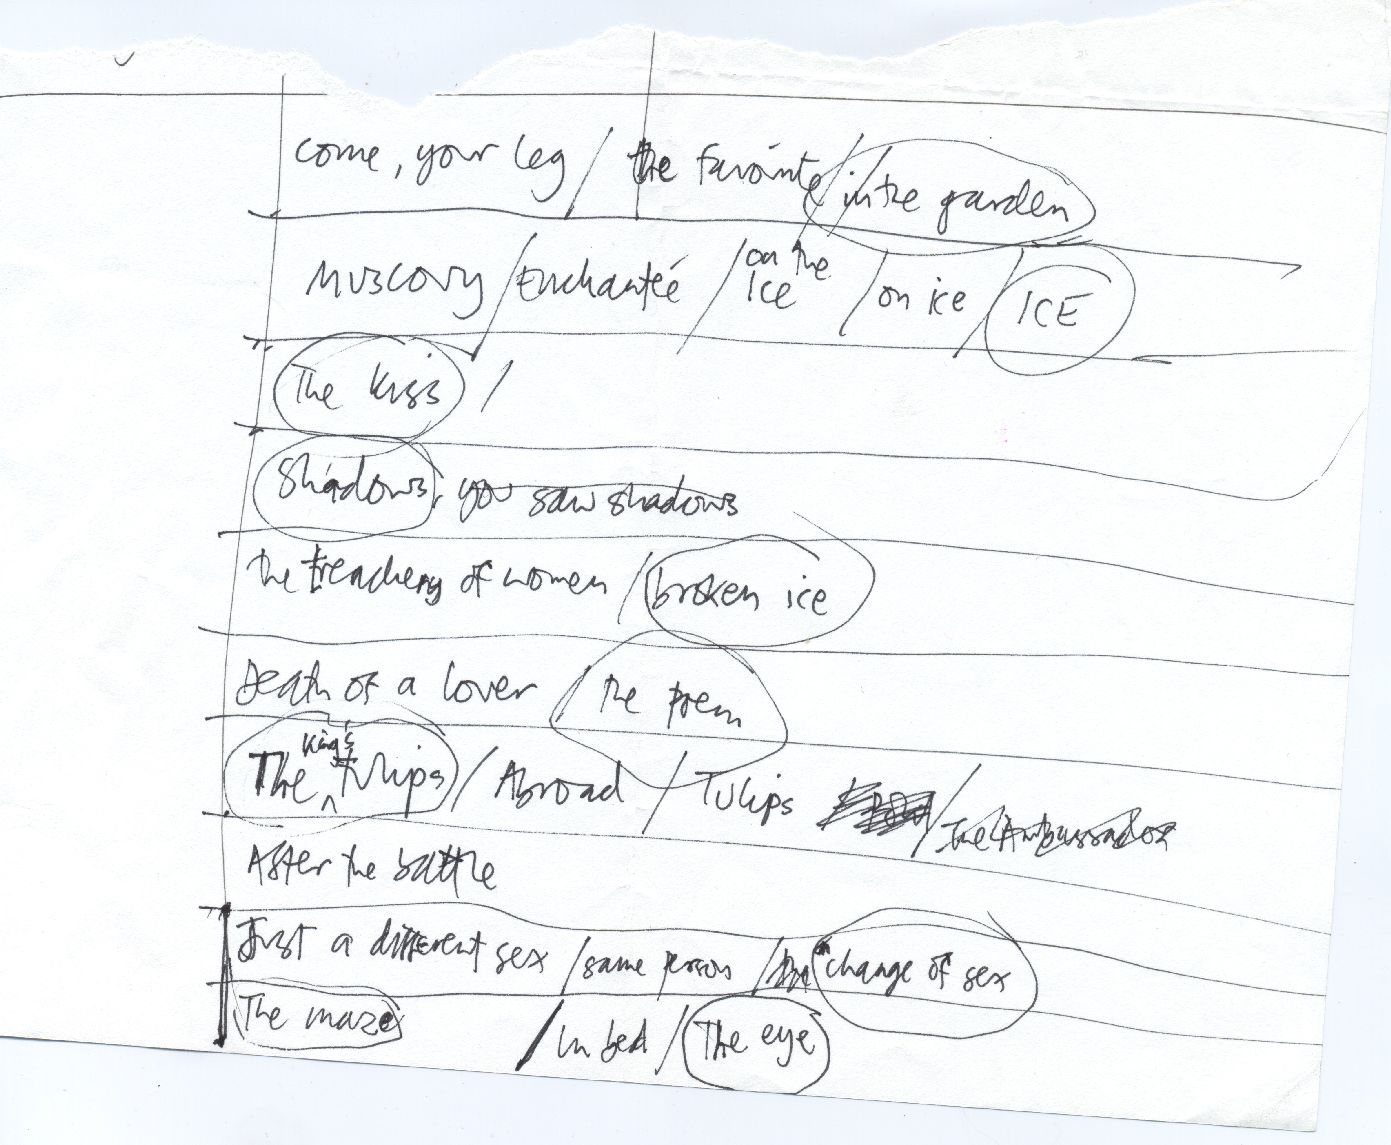 come, your leg / the favorite / in the garden
MUSCOVY / Enchantée / on the ICE / on ice / ICE
The kiss /
Shadows, you saw shadows
the treachery of women / broken ice
Death of a lover / the poem
The King's tulips / Abroad / Tulips / The Ambassador
After the battle
Just a different sex / same person / change of sex
The maze / in bed / The eye